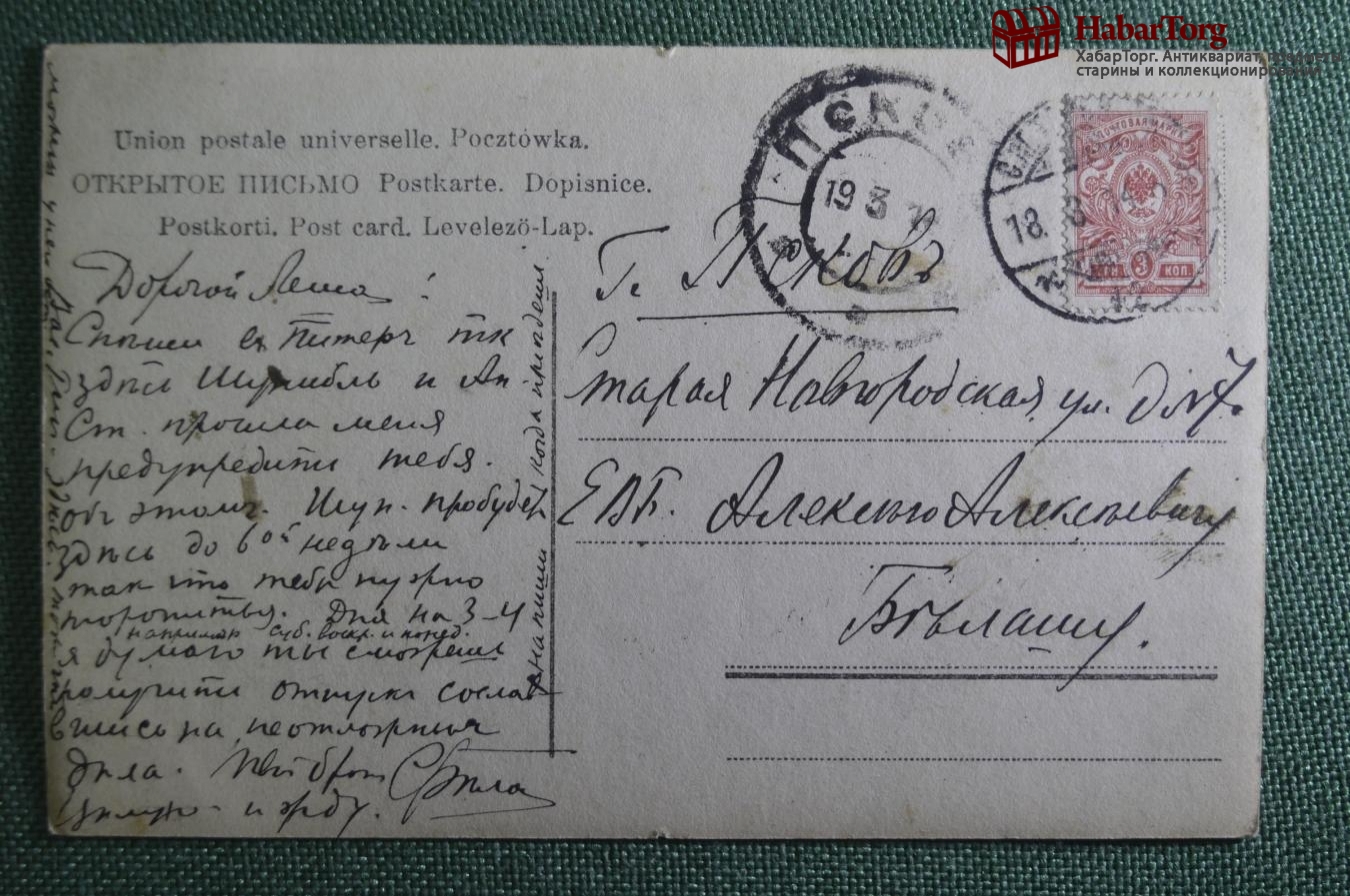 HabarTorg
ХабарТорг. Антиквариат, предметы
старины и коллекционирования
Union postale universelle. Pocztówka.
ОТКРЫТОЕ ПИСЬМО Postkarte. Dopisnice.
Postkorti. Post card. Levelező-Lap.
ПСКОВ
19 3
18. 3. 14
ПОЧТОВАЯ МАРКА
3 КОП
Дорогой Леша!
Спѣши въ Питеръ тк
здѣсь и Ан.
Ст. просила меня
предупредить тебя
объ этомъ. пробудетъ
здѣсь до 6ой недѣли
так что тебѣ нужно
торопиться. Дня на 3-4
например суб. воскр. и понед.
я думаю ты сможешь
получить отпускъ сослав
шись на неотложныя
дѣла. Твой брат
Цѣлую и жду.
напиши когда приѣдешь
Г. Псковъ
Старая Новгородская ул. д №7.
ЕВБ. Алексѣю Алексѣевичу